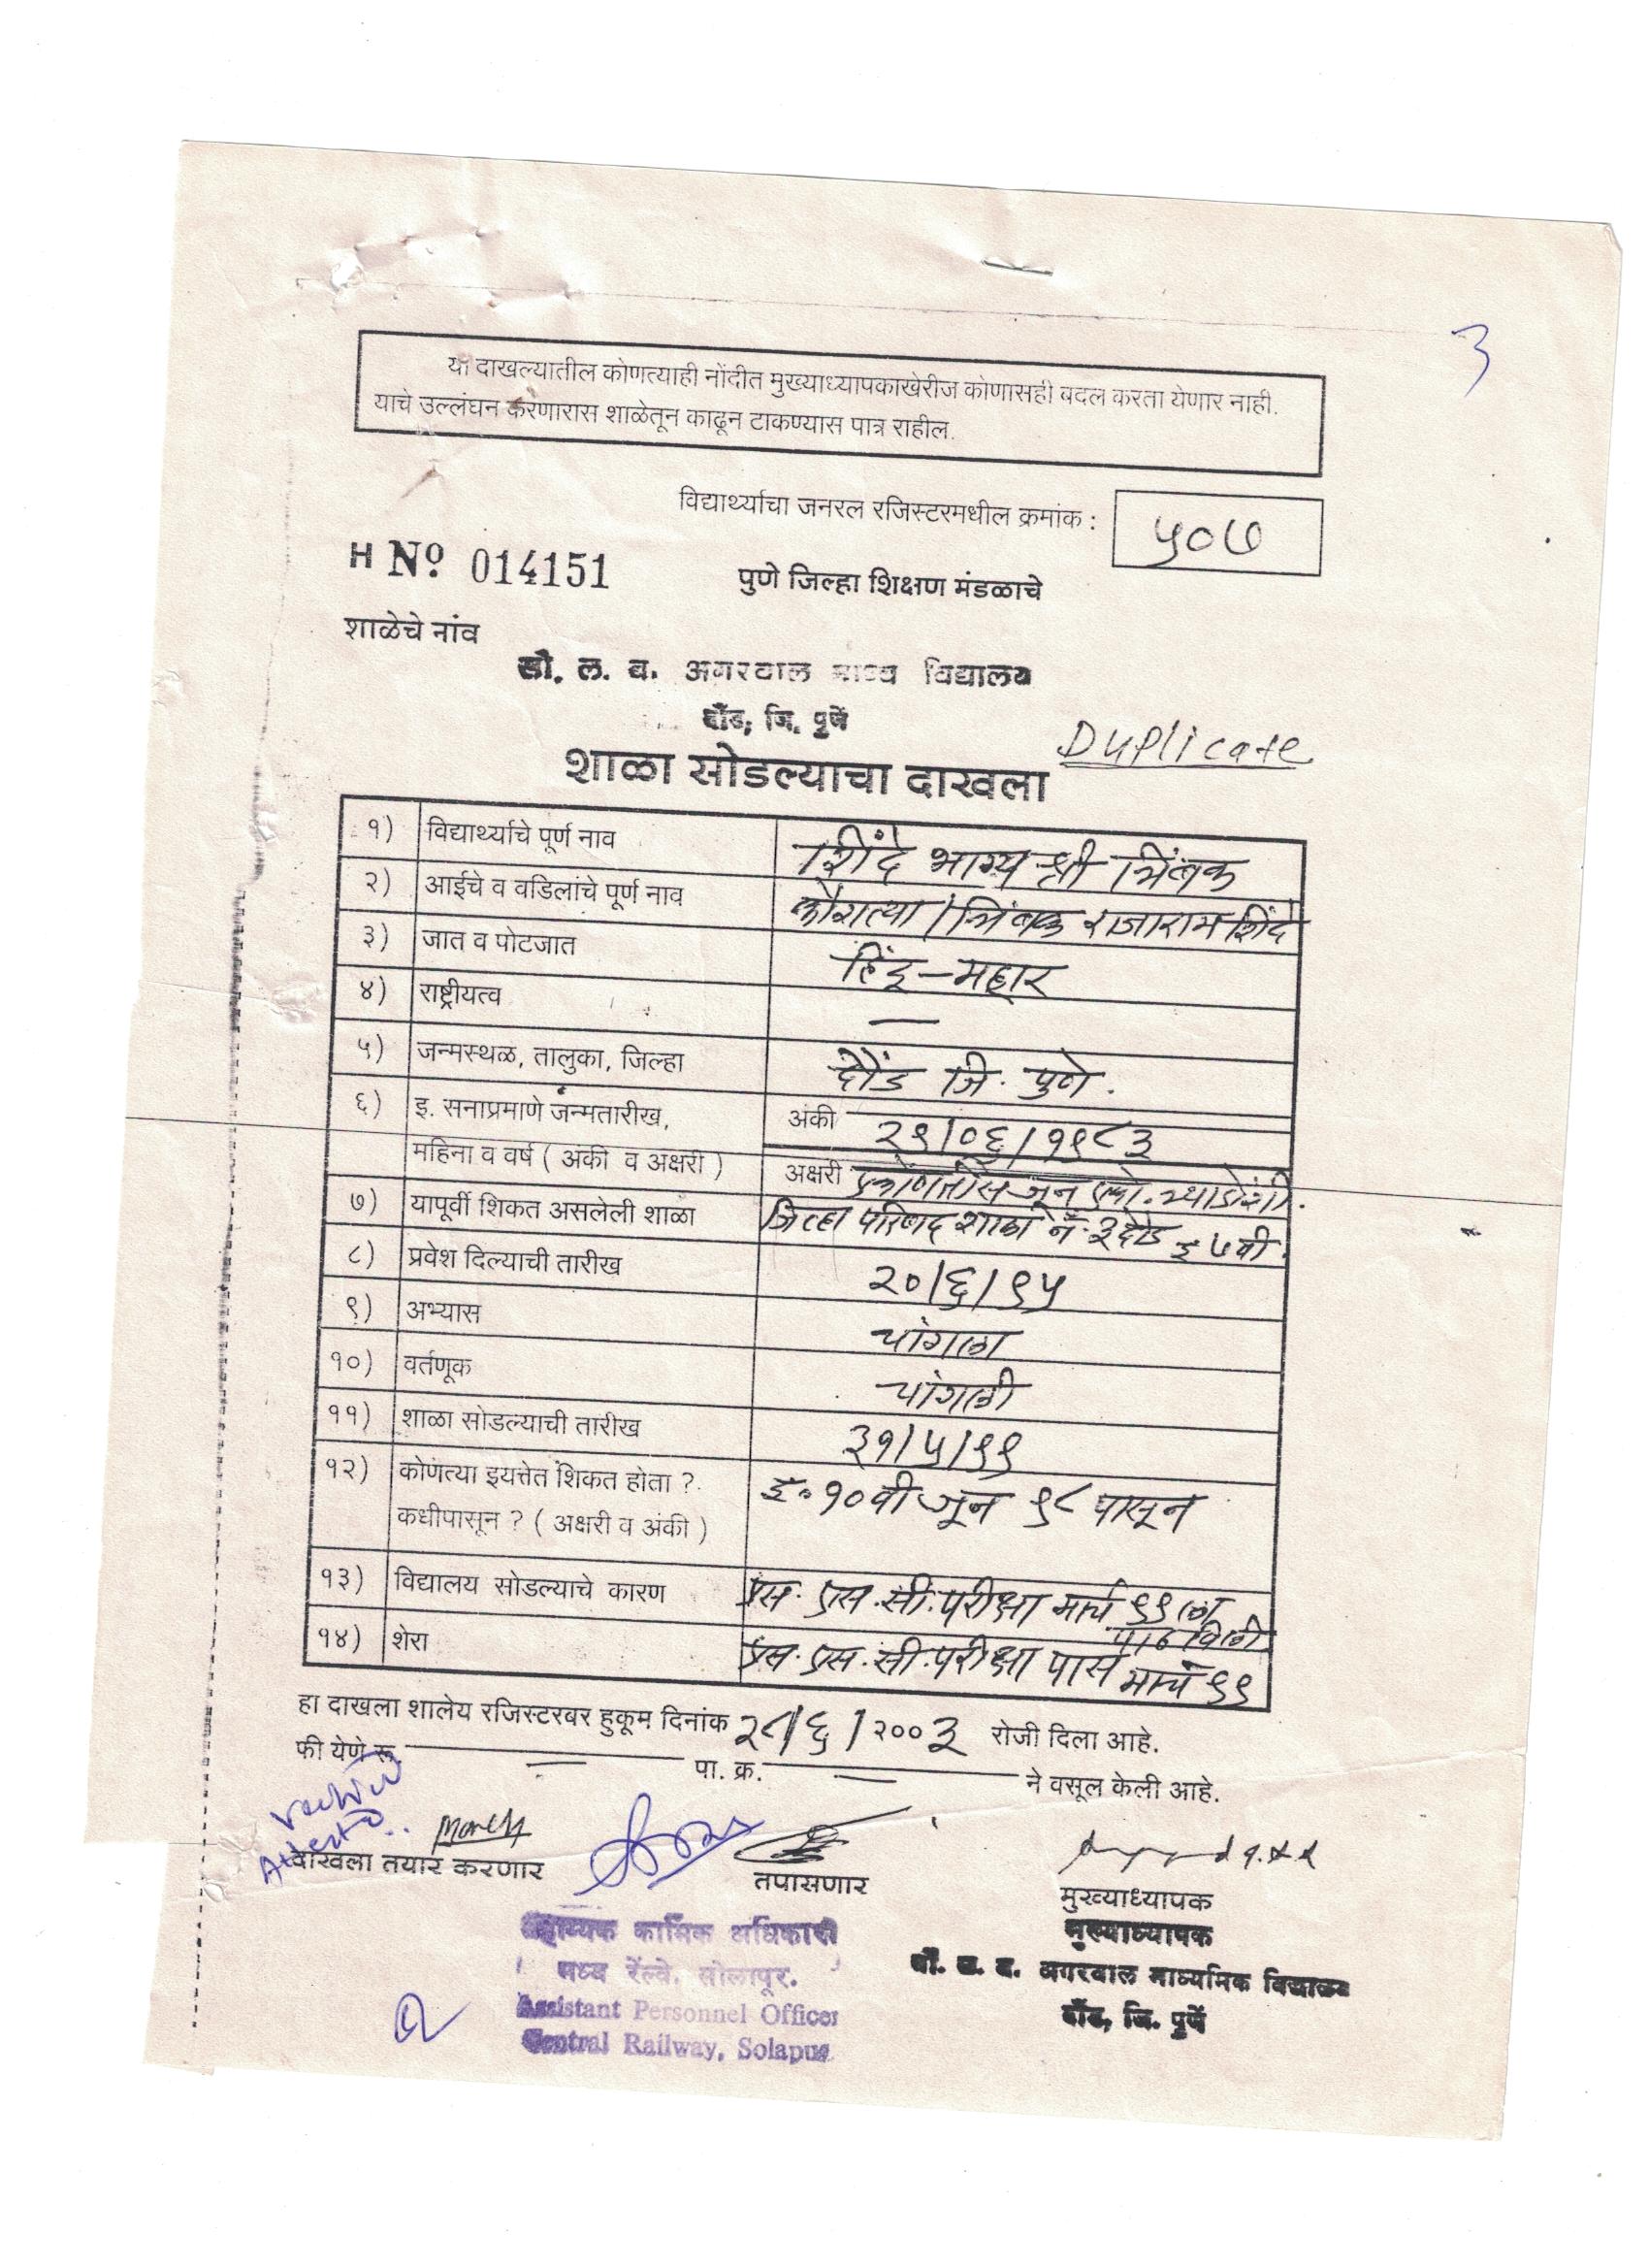 3
या दाखल्यातील कोणत्याही नोंदीत मुख्याध्यापकाखेरीज कोणासही बदल करता येणार नाही.
याचे उल्लंघन करणारास शाळेतून काढून टाकण्यास पात्र राहील.
विद्यार्थ्याचा जनरल रजिस्टरमधील क्रमांक : ५०७
H Nº 014151
पुणे जिल्हा शिक्षण मंडळाचे
शाळेचे नांव
सौ. ल. ब. अगरवाल माध्य विद्यालय
दौंड, जि. पुणें
Duplicate
शाळा सोडल्याचा दाखला
१) विद्यार्थ्याचे पूर्ण नाव शिंदे भाग्यश्री त्रिंबक
२) आईचे व वडिलांचे पूर्ण नाव कौशल्या / त्रिंबक राजाराम शिंदे
३) जात व पोटजात हिंदू – महार
४) राष्ट्रीयत्व —
५) जन्मस्थळ, तालुका, जिल्हा दौंड जि. पुणे.
६) इ. सनाप्रमाणे जन्मतारीख, अंकी २९/०६/१९८३
महिना व वर्ष ( अंकी व अक्षरी ) अक्षरी एकोणतीस जून एको. त्र्याऐंशी.
७) यापूर्वी शिकत असलेली शाळा जिल्हा परिषद शाळा नं. ३ दौंड इ ७वी.
८) प्रवेश दिल्याची तारीख २०/६/९५
९) अभ्यास चांगला
१०) वर्तणूक चांगली
११) शाळा सोडल्याची तारीख ३१/५/९९
१२) कोणत्या इयत्तेत शिकत होता ? इ. १०वी जून ९८ पासून
कधीपासून ? ( अक्षरी व अंकी )
१३) विद्यालय सोडल्याचे कारण एस. एस. सी. परीक्षा मार्च ९९ ला
पाठविली
१४) शेरा एस. एस. सी. परीक्षा पास मार्च ९९
हा दाखला शालेय रजिस्टरबर हुकूम दिनांक २८/६/२००३ रोजी दिला आहे.
फी येणे रू. — पा. क्र. — ने वसूल केली आहे.
दाखला तयार करणार
तपासणार
मुख्याध्यापक
मुख्याध्यापक
सौ. ल. ब. अगरवाल माध्यमिक विद्यालय
दौंड, जि. पुणें
सहाय्यक कार्मिक अधिकारी
मध्य रेंल्वे, सोलापूर.
Assistant Personnel Officer
Central Railway, Solapur